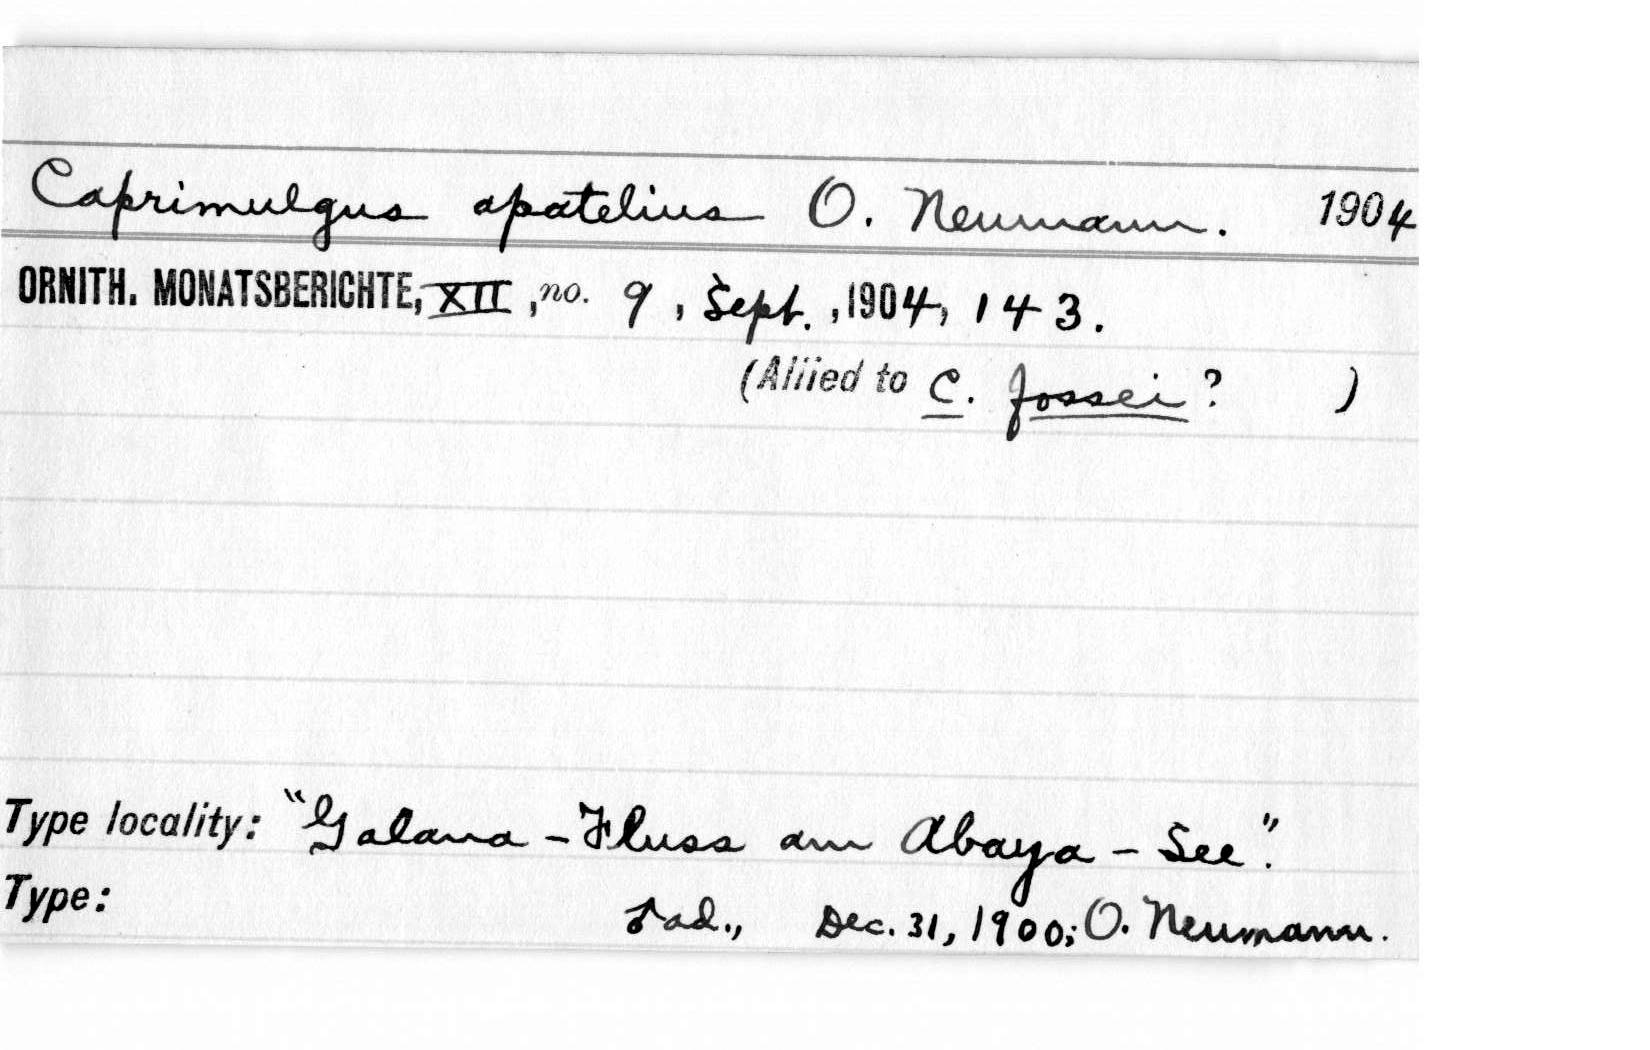 Caprimulgus apatelius O. Neumann. 1904
ORNITH. MONATSBERICHTE, XII, no. 9, Sept., 1904, 143.
(Allied to C. fossei? )
Type locality: "Galana-Fluss am Abaya-See".
Type: ♂ ad., Dec. 31, 1900; O. Neumann.